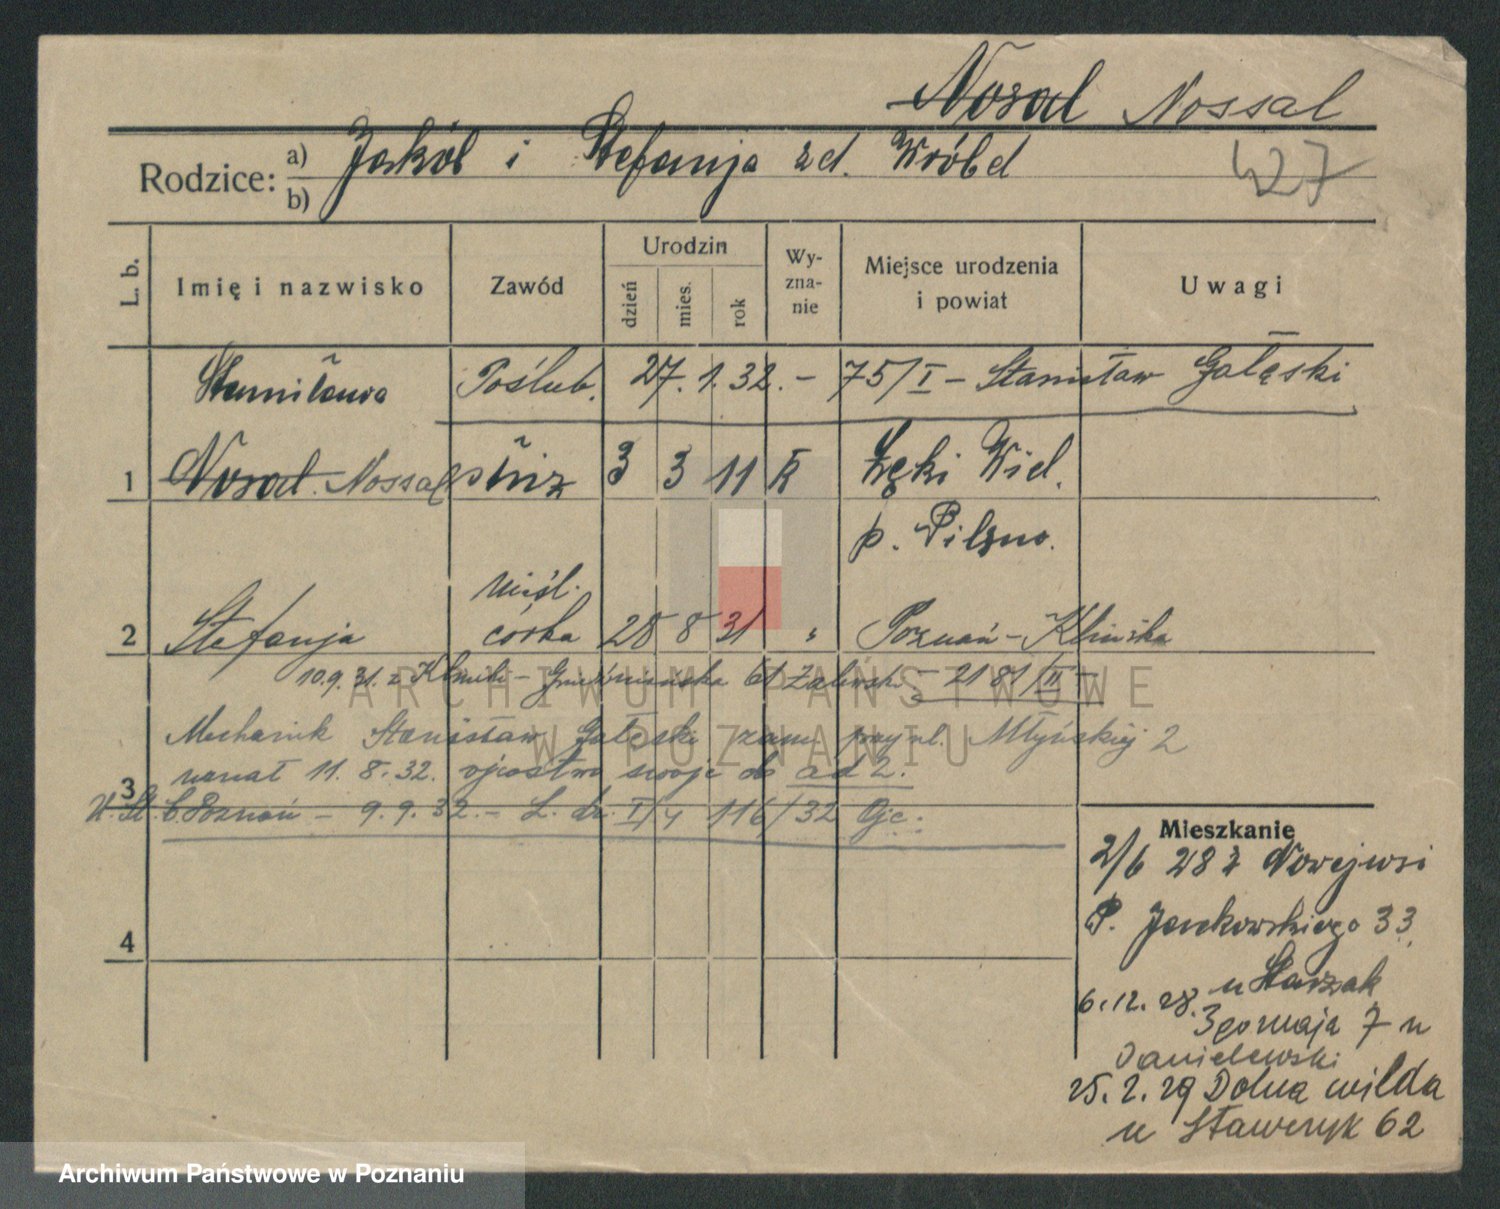 Nosal Nossal
Rodzice: a) Jakób i Stefanja zd. Wróbel
b)
427
L. b. Imię i nazwisko Zawód Urodzin dzień mies. rok Wy-zna-nie Miejsce urodzenia i powiat Uwagi
Stanisława Poślub. 27. 1. 32. – 75/I – Stanisław Gałęski
1 Nosal Nossal służ 3 3 11 k Łęki Wiel.
p. Pilzno.
nieśl.
2 Stefanja córka 28 8 31 " Poznań – Klinika
10.9.31. z Kliniki – 61 Zalewski – 2181/III –
Mechanik Stanisław Gałęski zam. przy ul. Młyńskiej 2
uznał 11. 8. 32. ojcostwo swoje do ad 2.
3 U. St. C. Poznań – 9. 9. 32. – L. dz. I/4 116/32
Mieszkanie
2/6 28 z Nowejwsi
P. Jarckowskiego 33
u Starzak
6.12.28. 3go maja 7 u
Danielewski
25. 2. 29 Dolna wilda
u Stawczyk 62
4
ARCHIWUM PAŃSTWOWE
W POZNANIU
Archiwum Państwowe w Poznaniu